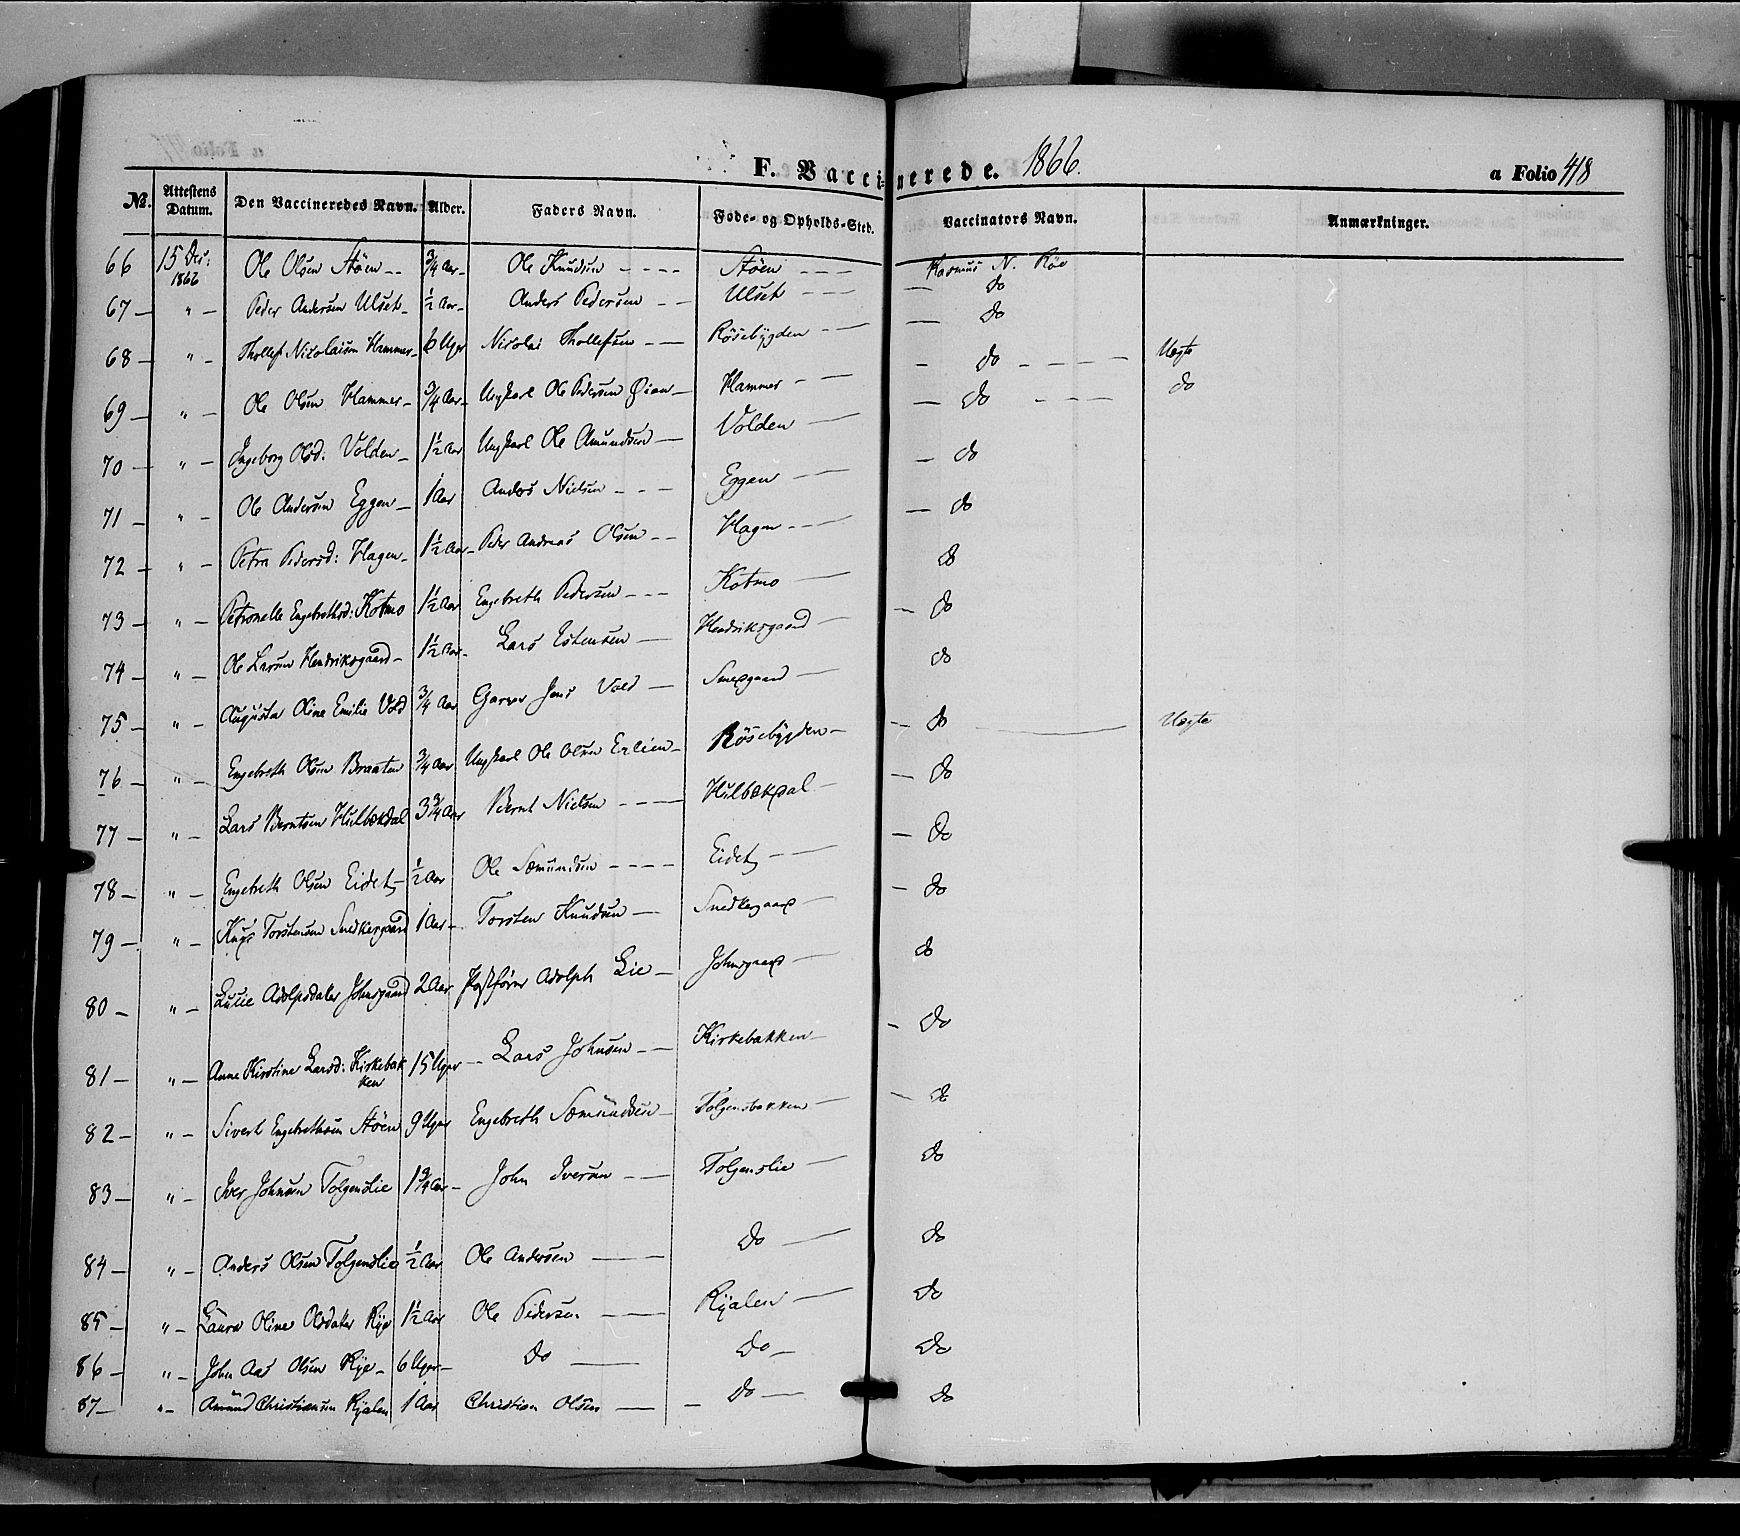 F. Vaccinerede. 1866.
a Folio 418
№. Attestens Datum. Den Vaccineredes Navn. Alder. Faders Navn. Føde- og Opholds-Sted. Vaccinators Navn. Anmærkninger.
66 15 Dec: 1866 Ole Olsen Støen -- 3/4 Aar- Ole Knudsen ---- Støen --- Rasmus N. Røe
67 — " — Peder Andersen Ulset- 1/2 Aar- Anders Pedersen -- Ulset --- — do
68 — " — Thollef Nicolaisen Hammer- 6 Uger Nicolai Thollefsen -- Rösebygden -- — do
69 — " — Ole Olsen Hammer- 3/4 Aar- Ungkarl Ole Pedersen Øian- Hammer -- - do ---- Uægte
70 — " — Ingeborg Olsd: Volden- 1 1/2 Aar Ungkarl Ole Amundsen — Volden — — do --- do
71 — " — Ole Andersen Eggen- 1 Aar Anders Nielsen --- Eggen — — do
72 — " — Petra Pedersd: Hagen- 1 1/2 Aar- Peder Andreas Olsen -- Hagen --- — do
73 — " — Petronelle Engebrethsd: Kotmo 1 1/2 Aar Engebreth Pedersen --- Kotmo — do
74 — " — Ole Larsen Hendriksgaard- 1 1/2 Aar- Lars Estensen — Hendriksgaard — — do
75 — " — Augusta Oline Emilie Vold 3/4 Aar Garver Jens Vold — Smedgaard — do
76 — " — Engebreth Olsen Braaten 3/4 Aar Ungkarl Ole Olsen Erlien- Rösebygden — — do — Uægte
77 — " — Lars Berntsen Hulbækdal 3 3/4 Aar Bernt Nielsen ---- Hulbækdal — — do
78 — " — Engebreth Olsen Eidet- 1/2 Aar Ole Sæmundsen ---- Eidet, -- — do
79 — " — Knud Torstensen Snedkergaard 1 Aar- Torsten Knudsen — Snedkergaard — — do
80 — " — Lucie Adolphdater Johnsgaard 2 Aar Postfører Adolph Lie — Johnsgaard — do
81 — " — Anne Kirstine Larsd: Kirkebakken 15 Uger -- Lars Johnsen -- Kirkebakken — - do
82 — " — Sivert Engebrethsen Støen 9 Uger Engebreth Sæmundsen — Tolgensbakken — — do
83 — " — Iver Johnsen Tolgenslie 1 3/4 Aar- John Iversen -- Tolgenslie — do
84 — " — Anders Olsen Tolgenslie 1/2 Aar Ole Andersen — do — do
85 — " — Laura Oline Olsdater Rye 1 1/2 Aar Ole Pedersen — Ryalen — do
86 — " — John Aas Olsen Rye- 6 Uger- do — do — do
87 — " — Amund Christiansen Ryalen 1 Aar Christian Olsen — do — do